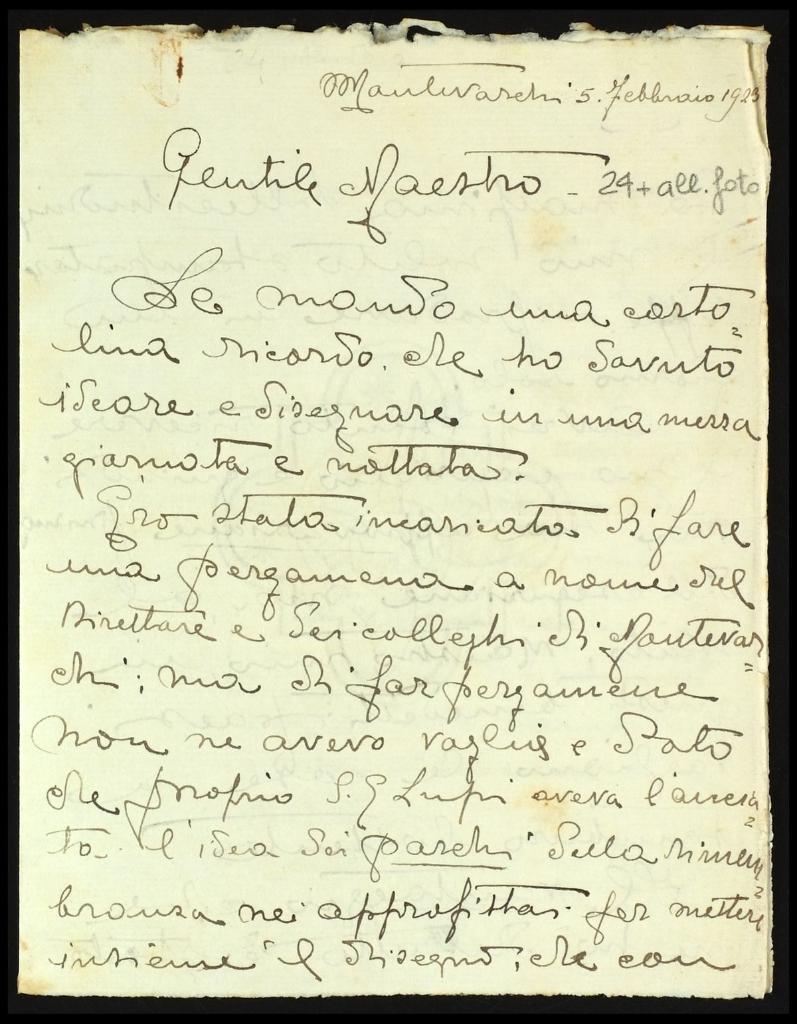 Montevarchi 5. Febbraio 1923
Gentile Maestro - 24 + all. foto
Le mando una carto=
lina ricordo che ho dovuto
ideare e disegnare in una mezza
giornata e nottata.
Ero stata incaricata di fare
una pergamena a nome del
Direttore e dei colleghi di Montevar=
chi; ma di far pergamene
non ne avevo voglia e dato
che proprio S. E Lupi aveva
l'idea dei parchi della rimem=
branza ne approfittai per mettere
insieme il disegno, che con